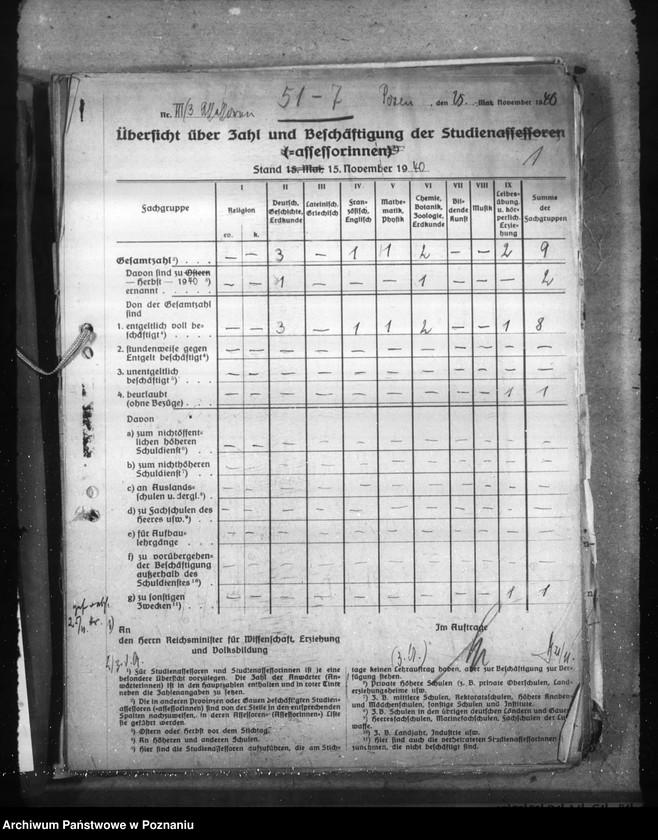 Nr. III/3
51-7
Posen, den 25. Mai, November 1940
Übersicht über Zahl und Beschäftigung der Studienassessoren
(=assessorinnen)
Stand 15. Mai, 15. November 1940
1
Fachgruppe
I
Religion
ev.
k.
II
Deutsch,
Geschichte,
Erdkunde
III
Lateinisch,
Griechisch
IV
Fran-
zösisch,
Englisch
V
Mathe-
matik,
Physik
VI
Chemie,
Botanik,
Zoologie,
Erdkunde
VII
Bil-
dende
Kunst
VIII
Musik
IX
Leibes-
übung.
u. kör-
perlich.
Erzie-
hung
Summe
der
Fachgruppen
Gesamtzahl²) . . . — — 3 — 1 1 2 — — 2 9
Davon sind zu Ostern
— Herbst — 1940 ³)
ernannt . . . . . — — 1 — — — 1 — — — 2
Von der Gesamtzahl
sind
1. entgeltlich voll be-
schäftigt⁴) . . . — — 3 — 1 1 2 — — 1 8
2. stundenweise gegen
Entgelt beschäftigt⁴) — — — — — — — — — — —
3. unentgeltlich
beschäftigt⁵) . . . — — — — — — — — — — —
4. beurlaubt
(ohne Bezüge) . . . — — — — — — — — — 1 1
Davon
a) zum nichtöffent-
lichen höheren
Schuldienst⁶) . . — — — — — — — — — — —
b) zum nichthöheren
Schuldienst⁷) . . — — — — — — — — — — —
c) an Auslands-
schulen u. dergl.⁸) . — — — — — — — — — — —
d) zu Fachschulen des
Heeres usw.⁹) . . — — — — — — — — — — —
e) für Aufbau-
lehrgänge . . . — — — — — — — — — — —
f) zu vorübergehen-
der Beschäftigung
außerhalb des
Schuldienstes¹⁰) . — — — — — — — — — — —
g) zu sonstigen
Zwecken¹¹) . . . — — — — — — — — — 1 1
An
den Herrn Reichsminister für Wissenschaft, Erziehung
und Volksbildung
Im Auftrage
¹) Für Studienassessoren und Studienassessorinnen ist je eine
besondere Übersicht vorzulegen. Die Zahl der Anwärter (An-
wärterinnen) ist in den Hauptzahlen enthalten und in roter Tinte
neben die Zahlenangaben zu setzen.
²) Die in anderen Provinzen oder Gauen beschäftigten Studien-
assessoren (=assessorinnen) sind von der Stelle in den entsprechenden
Spalten nachzuweisen, in deren Assessoren= (Assessorinnen=) Liste
sie geführt werden.
³) Ostern oder Herbst vor dem Stichtag.
⁴) An Höheren und anderen Schulen.
⁵) Hier sind die Studienassessoren aufzuführen, die am Stich-
tage keinen Lehrauftrag haben, aber zur Beschäftigung zur Ver-
fügung stehen.
⁶) Private Höhere Schulen (z. B. private Oberschulen, Land-
erziehungsheime usw.
⁷) Z. B. mittlere Schulen, Rektoratschulen, höhere Knaben-
und Mädchenschulen, sonstige Schulen und Institute.
⁸) Z. B. Schulen in den übrigen deutschen Ländern und Gauen
⁹) Heeresfachschulen, Marinefachschulen, Fachschulen der Luft-
waffe.
¹⁰) Z. B. Landjahr, Industrie usw.
¹¹) Hier sind auch die verheirateten Studienassessorinnen
zunehmen, die nicht beschäftigt sind.
Archiwum Państwowe w Poznaniu